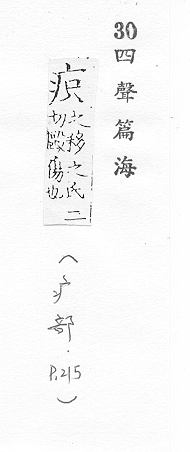 30四聲篇海
疻
之移之氏二
切毆傷也
（疒部．P.215）